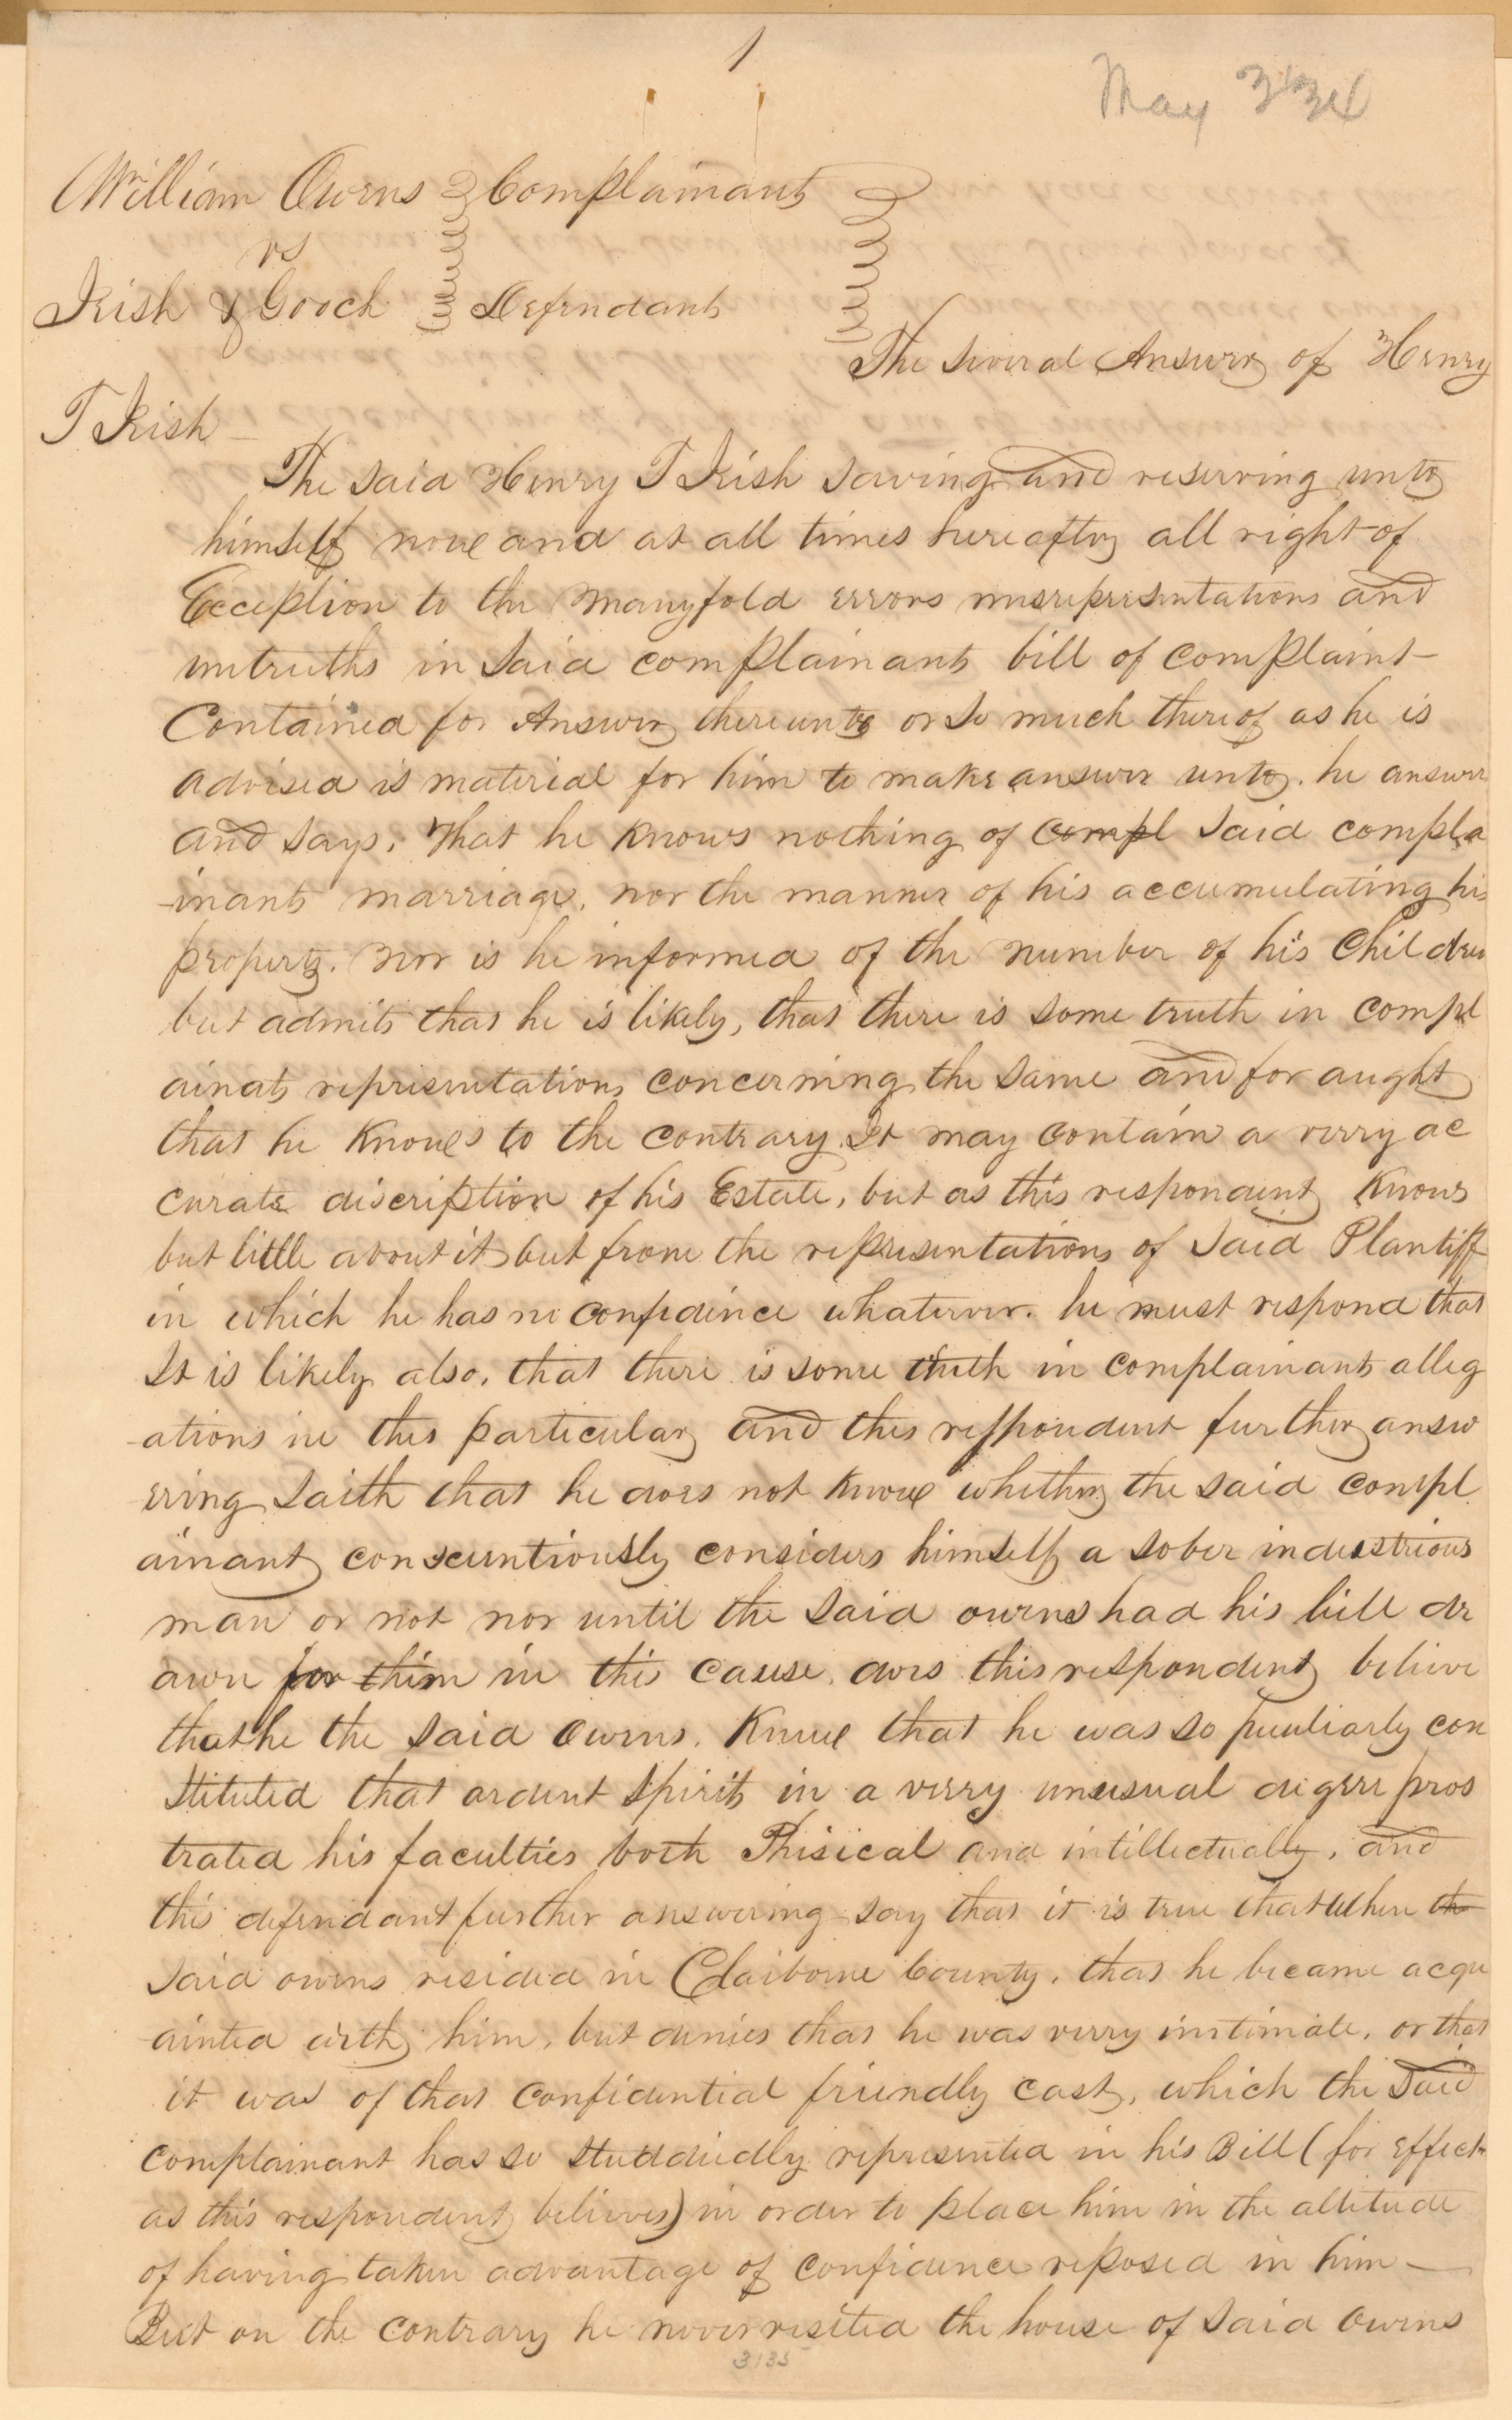 1
May
William Owens Complainant
vs
Irish & Gooch Defendants
The Several Answer of Henry
T Irish
The said Henry T Irish saving and reserving unto
himself now and at all times hereafter all right of
Exception to the manyfold errors misrepresentations and
untruths in said complainants bill of complaint
Contained for Answer thereunto or so much thereof as he is
advised is material for him to make answer unto. he answer
and says, That he knows nothing of compl said compla
inants marriage, nor the manner of his accumulating his
property. Nor is he informed of the number of his Children
but admits that he is likely, that there is some truth in compl
ainats representations concerning the same and for aught
that he knows to the contrary It may contain a verry ac
curate discription of his Estate, but as this respondent knows
but little about it but from the representations of said Plantiff
in which he has no confidence whatever. he must respond that
It is likely also, that there is some truth in complainants alleg
ations in this particular and this respondent further answ
ering saith that he does not know whether the said compl
ainant conscientiously considers himself a sober industrious
man or not nor until the said owens had his bill dr
awn for him in this cause, does this respondent believe
that he the said Owens, knew that he was so peculiarly con
stituted that ardent spirits in a verry unusual degree pros
trated his faculties both Phisical and intillectually, and
this defendant further answering say that it is true that when the
said owens resided in Claiborne County, that he became acqu
ainted with him, but denies that he was verry inntimate, or that
it was of that confidential friendly cast, which the said
complainant has so studdiedly represented in his Bill (for effect
as this respondent believes) in order to place him in the attitude
of having taken advantage of confidence reposed in him
But on the contrary he never visited the house of said Owens
3135